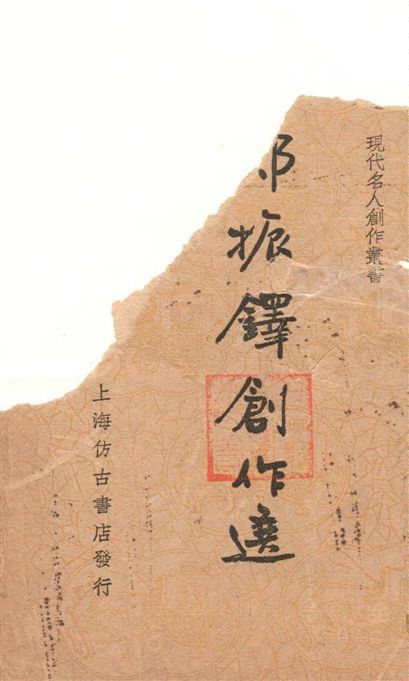 現代名人創作叢書
鄭振鐸創作選
上海仿古書店發行